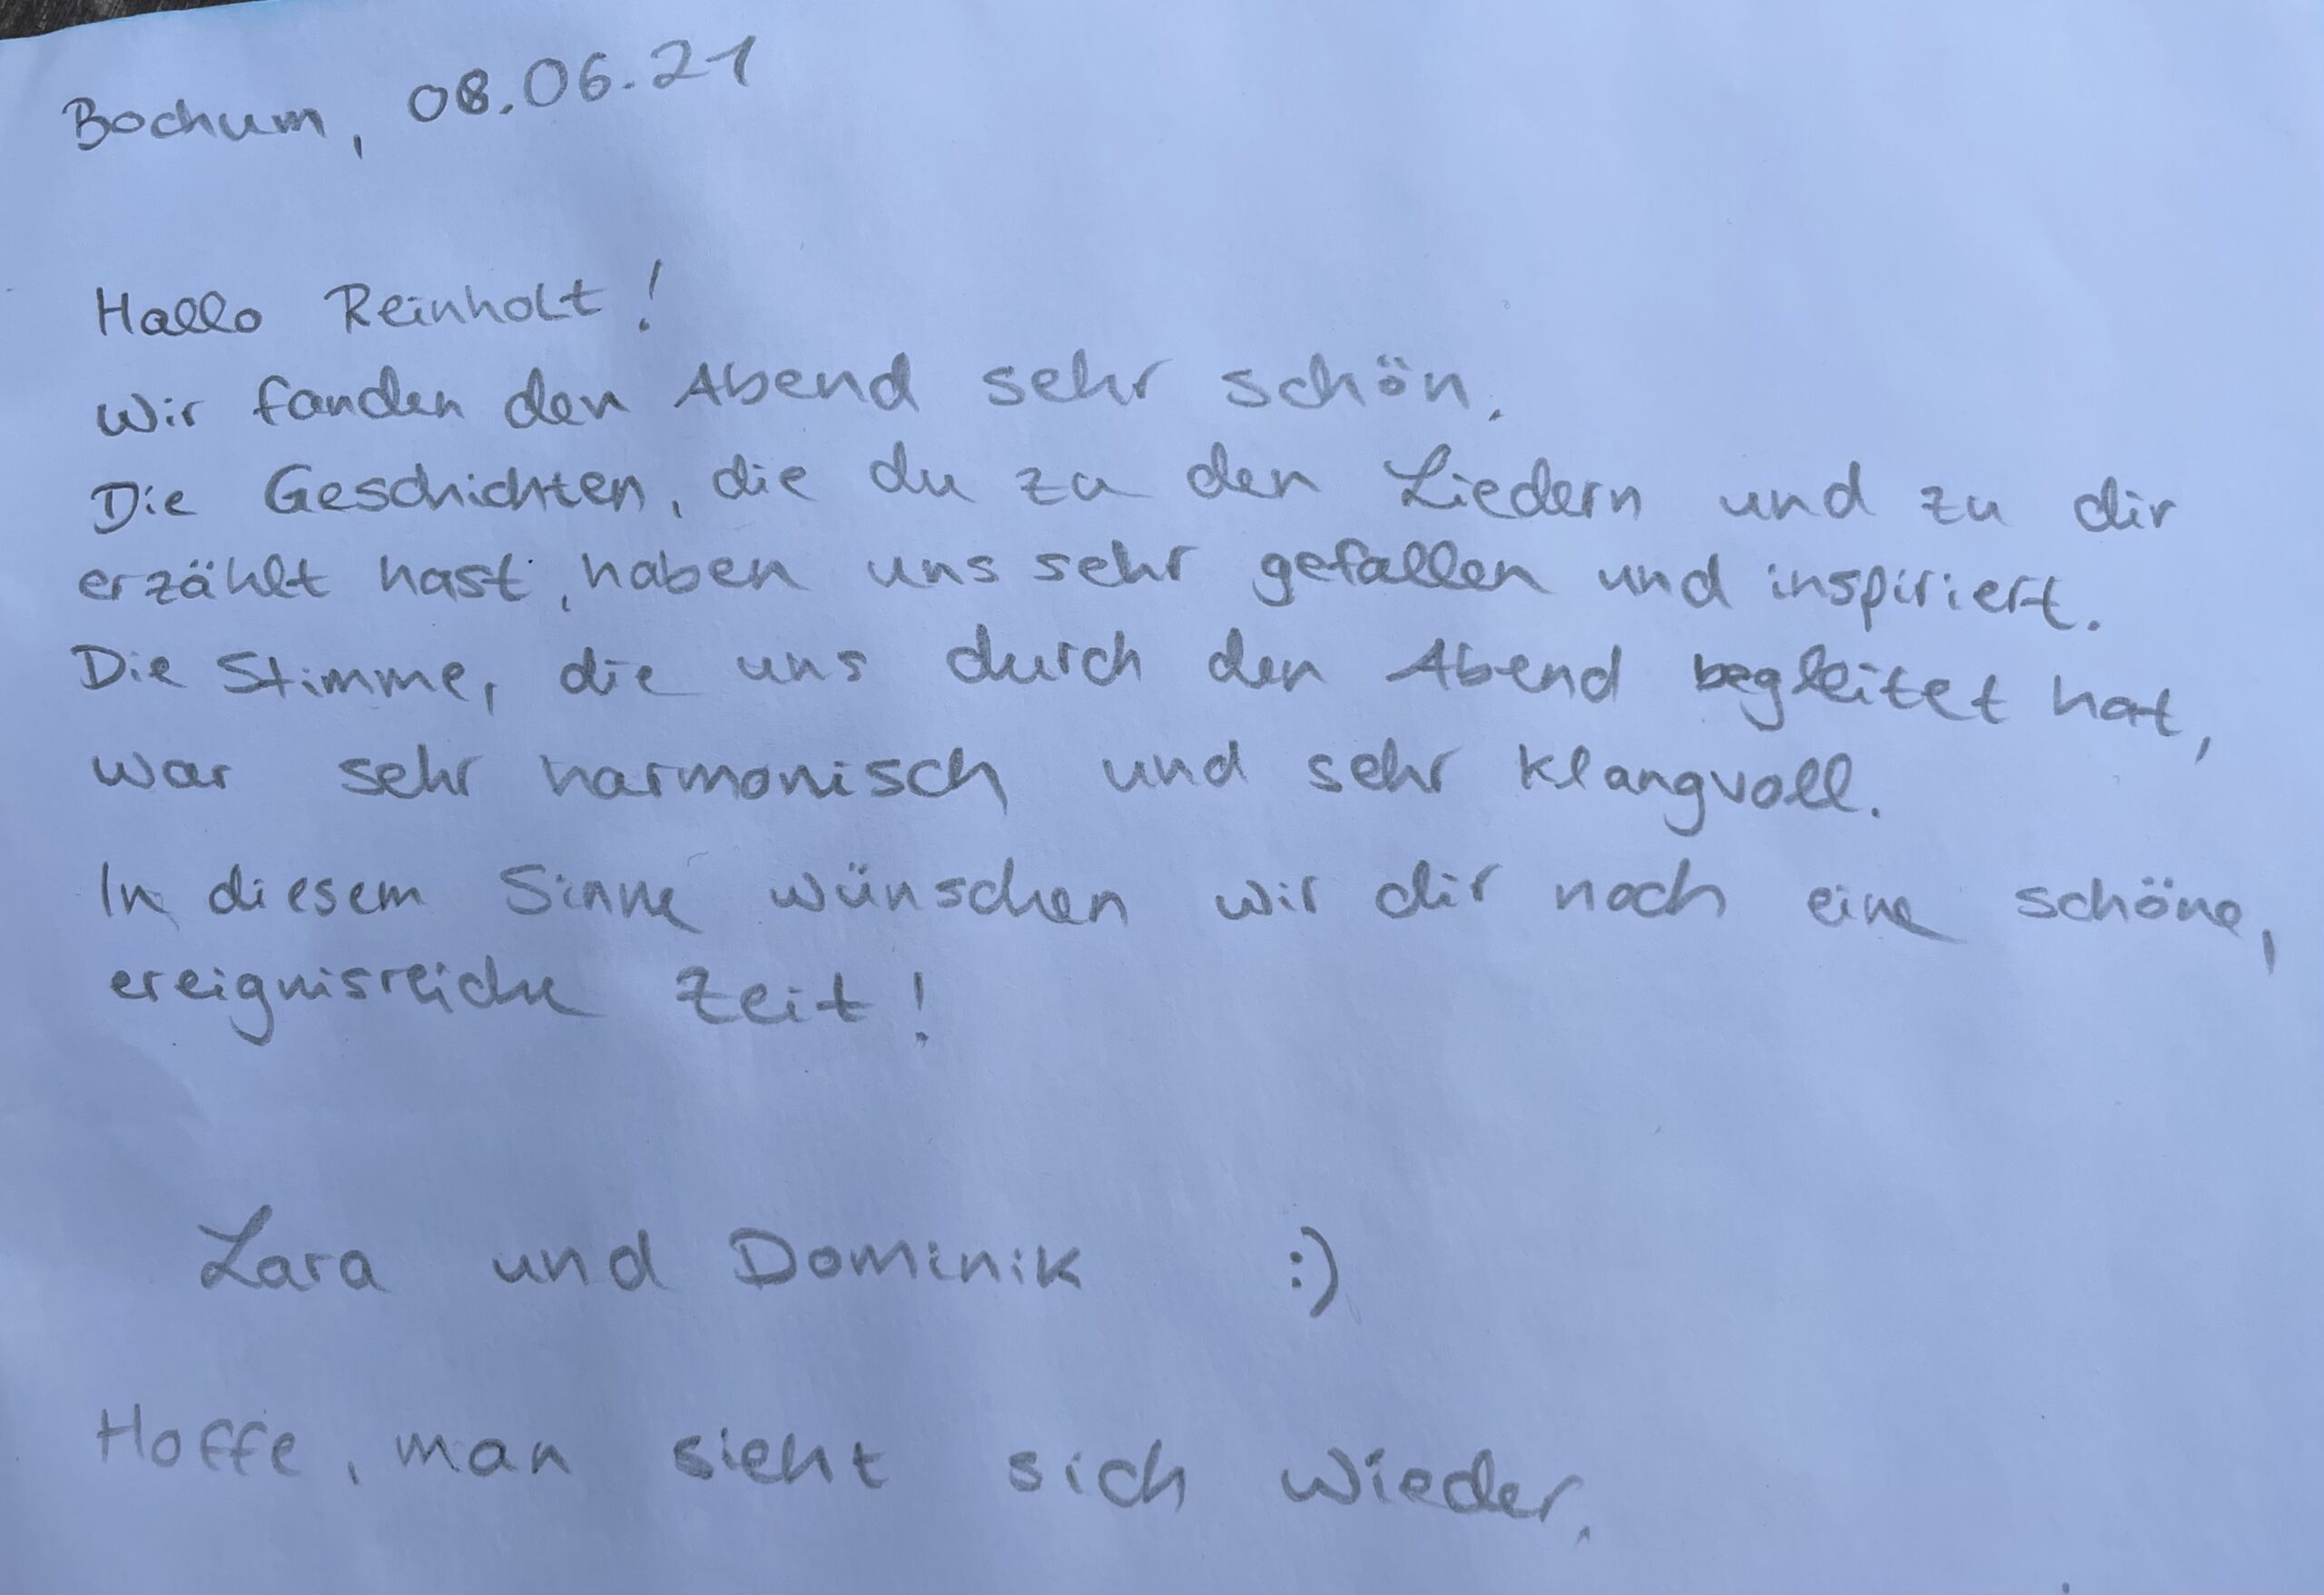 Bochum, 08.06.21
Hallo Reinholt!
Wir fanden den Abend sehr schön.
Die Geschichten, die du zu den Liedern und zu dir
erzählt hast, haben uns sehr gefallen und inspiriert.
Die Stimme, die uns durch den Abend begleitet hat,
war sehr harmonisch und sehr klangvoll.
In diesem Sinne wünschen wir dir noch eine schöne,
ereignisreiche Zeit!
Lara und Dominik :)
Hoffe, man sieht sich wieder.